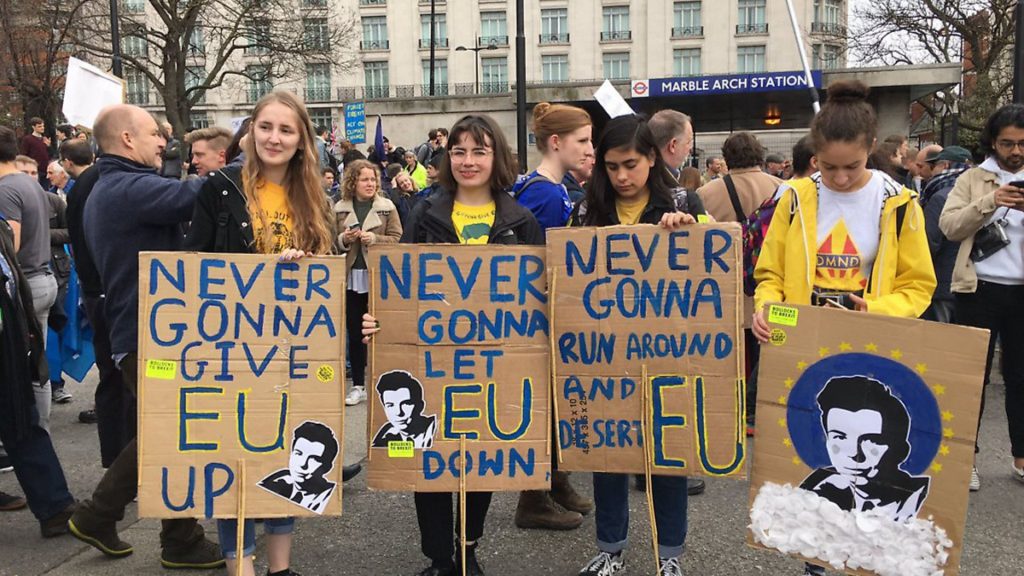 MARBLE ARCH STATION
NEVER
GONNA
GIVE
EU
UP
BOLLOCKS
TO BREXIT
NEVER
GONNA
LET
EU
DOWN
BOLLOCKS
TO BREXIT
NEVER
GONNA
RUN AROUND
AND
DESERT EU
BOLLOCKS
TO BREXIT